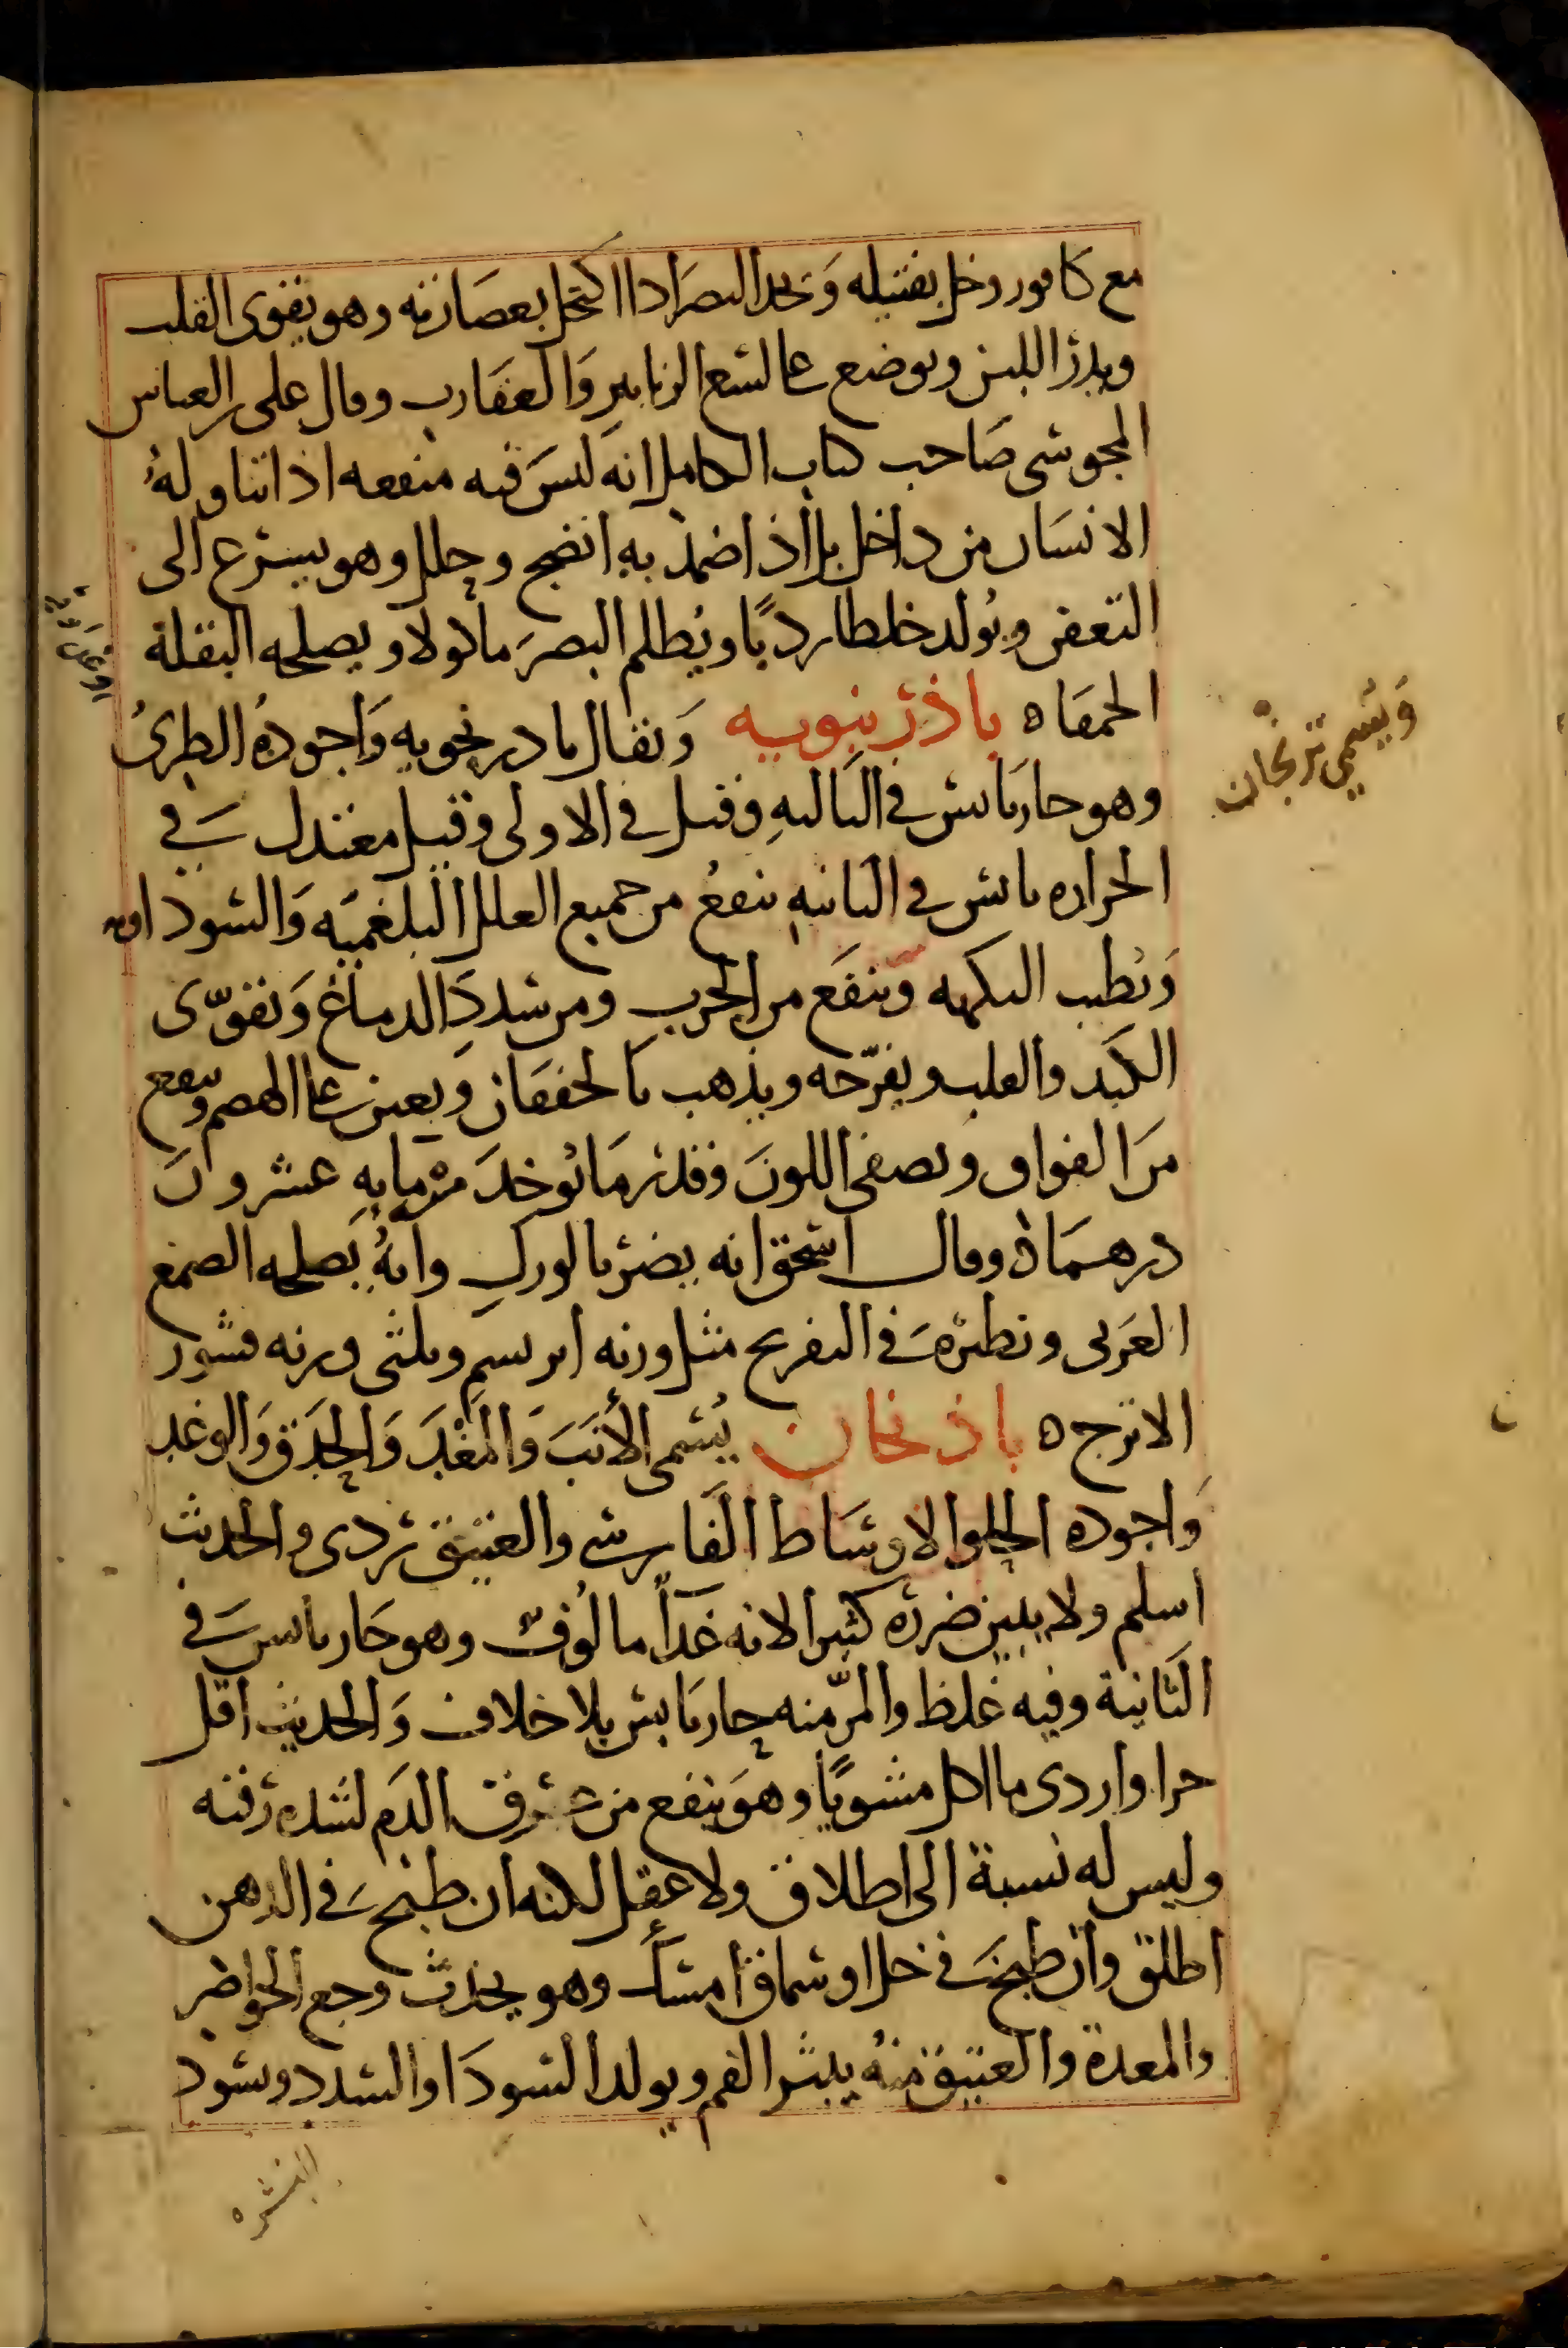 مع كافور وخل بفتيله وَيحد البصَر اذا اكتحل بعصَارته وهو يقوى القلب
ويدرّ اللبن ويوضع على لسْع الزنابير وَالعقَارب وقال على بن العباس
المجوسْى صَاحب كتاب الكامل انه ليسَ فيه منفعه اذا تناوله
الانسَان من داخل بل اذا ضمد به انضج وحلل وهو يسْرع الى
التعفن ويُولد خلطا رديًا ويُظلم البصرَ ماكولا ويصلحه البقلة
الحمقا ه باذرنبويه وَيقال بادرنجويه وَاجودهُ الطرىُ
وَيُسمي ترنجان
وهو حار يابسْ في الثالثه وقيل في الاولى وقيل معتدل في
الحراره يابسْ في الثانيه ينفعُ من جميع العلل البلغميَه وَالسْوداويه
وَيُطيب النكهه وَينفَع من الجرب ومن سْددَ الدماغ وَيقوّى
الكَبد والقلب ويفرّحه ويذهب بالخفقان وَيعين على الهضم وينفع
مَن الفواق ويصفى اللونَ وقدر مَا يُوخذَ مْن مايهِ عشرونَ
درهمَا ه وقال اسْحق انه يضرّ بالورك وانهُ يَصلحه الصمغ
العَربى ونظيرهَ في التفريح مثل وزنه ابريسم وثلثى وزنه قشور
الاترج ه باذنجان يُسْمى الأنَبَ وَالمَغْدَ وَالحَدَق وَالوغد
وَاجوده الحلو الاوسَاط الفَارسْى والعتيق ردى والحديث
اسلم ولا يبين ضرره كثيرا لانه غذاً مالُوف وهو حَار يابس في
الثانية وفيه غلظ والمرّ منه حار يابسْ بلا خلاف وَالحديث اقل
حرا واردى ما اكل مشويًا وهوَ ينفع من عرق الدَم لشده رقته
وليس له نسبة الى اطلاق ولا عقل لكنه ان طبخَ في الدهن
اطلق وان طبخَ في خل او سْماق امسْك وهو يحدث وجع الخواطر
والمعدة والعتيق منهُ يبثر الفم ويولد السْودَا والسْدد ويسْود
البشره